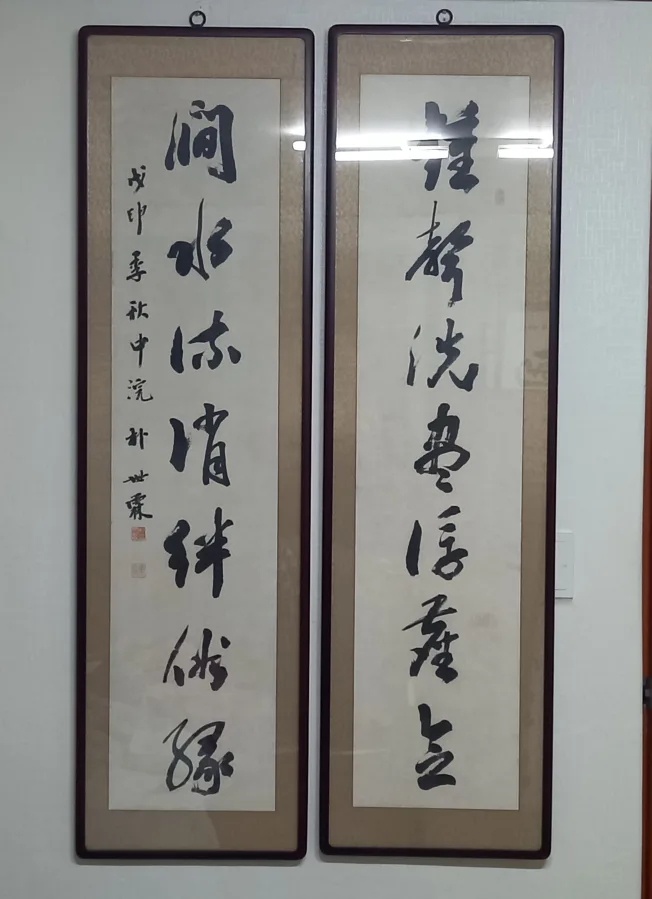 鐘聲洗盡浮塵念
澗水流消絆俗緣
戊申季秋中浣 朴世霖